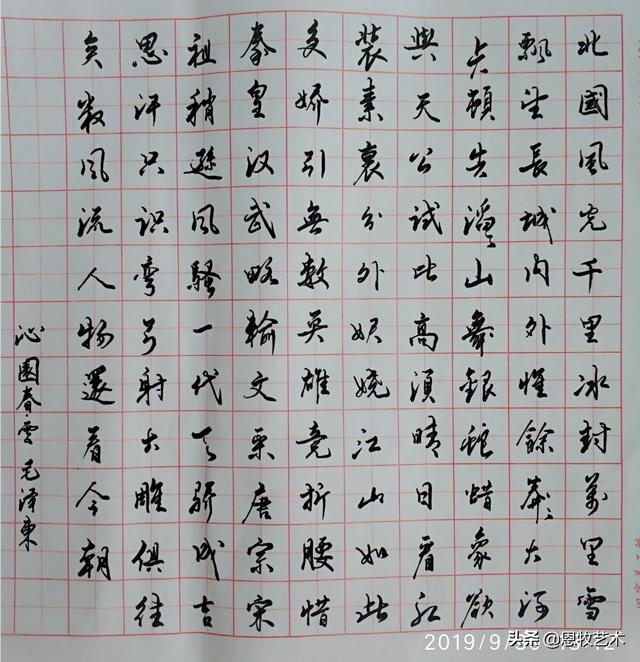 北國風光千里冰封萬里雪
飄望長城内外惟餘莽々大河
上下頓失滔々山舞銀蛇蜡象欲
與天公試比高須晴日看红
装素裹分外妖娆江山如此
多娇引無數英雄竞折腰惜
秦皇汉武略輸文采唐宗宋
祖稍遜風騷一代天骄成吉
思汗只识彎弓射大雕俱往
矣数風流人物還看今朝
沁園春雪 毛泽東
2019/9/
头条 @恩牧艺术